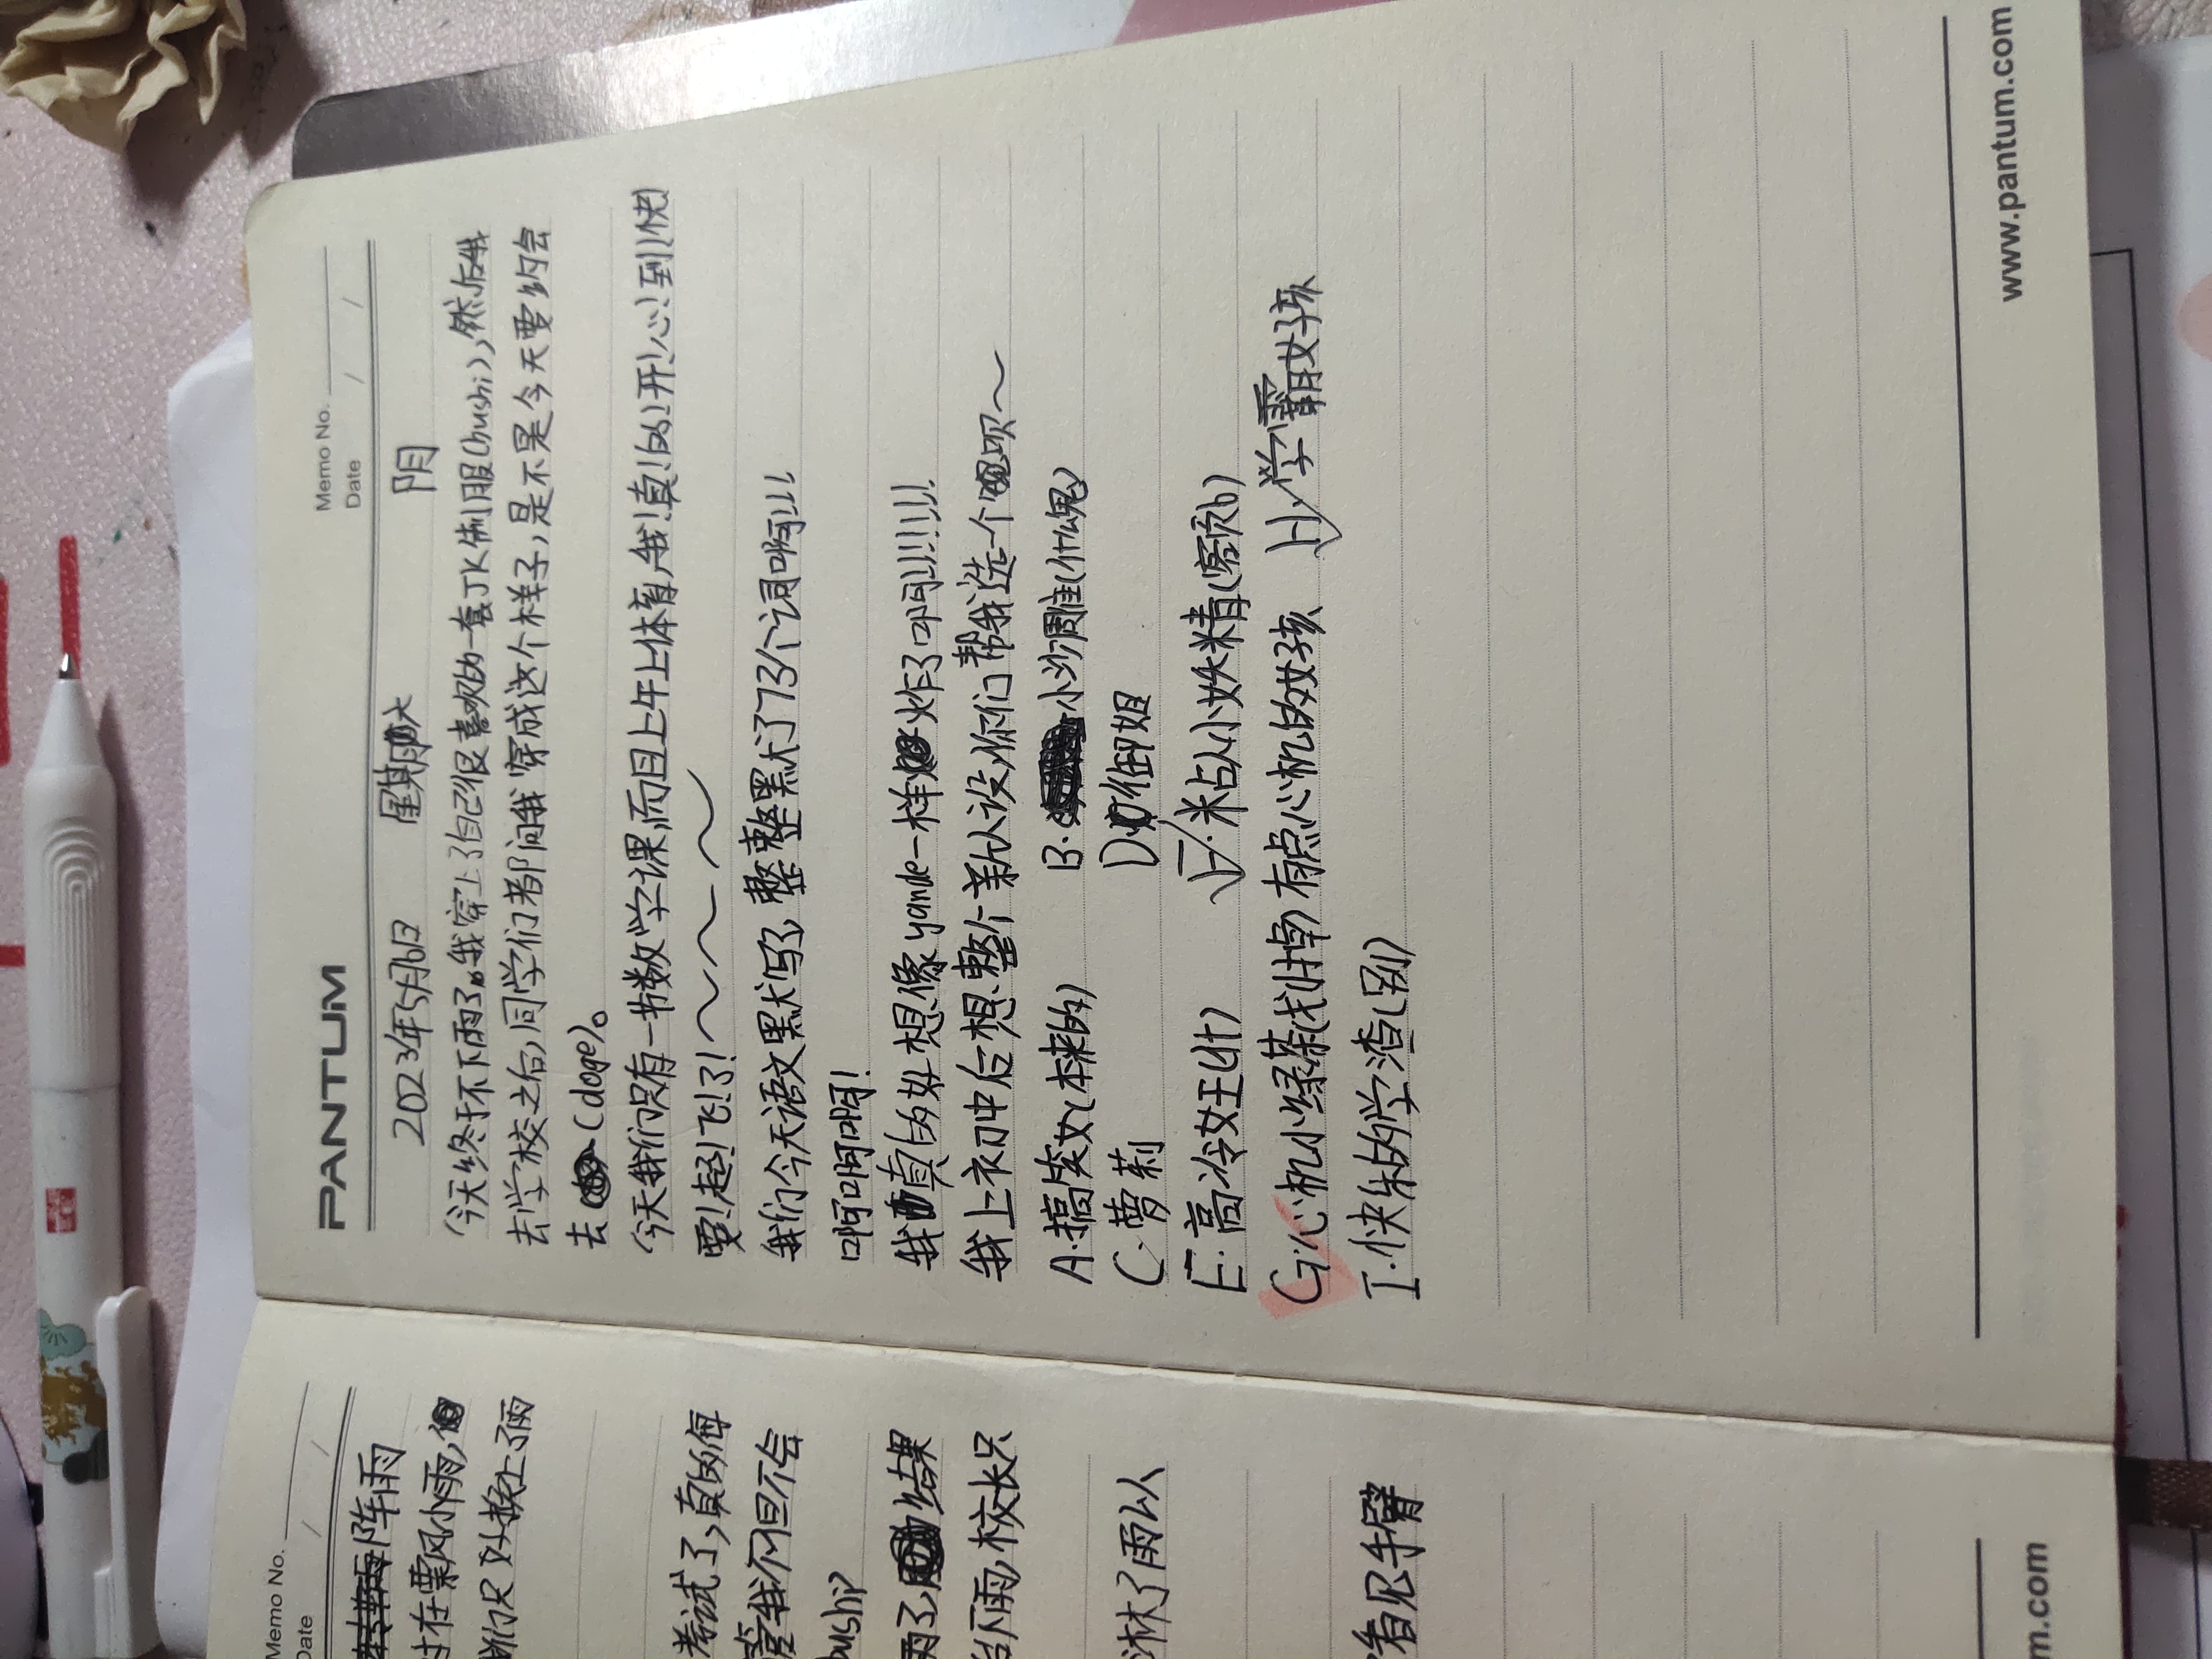 PANTUM
Memo No.
Date / /
2023年5月6日 星期六 阴
今天终于不下雨了。我穿上了自己很喜欢的一套JK制服(bushi),然后我
去学校之后,同学们都问我穿成这个样子,是不是今天要约会
去(doge)。
今天我们只有一节数学课,而且上午上体育,我!真!的!开!心!到!快!
要!起!飞!了!~~~~
我们今天语文默写了,整整默了73个词啊!!!
啊啊啊!
我真的好想像yande一样炸了啊!!!!!!!
我上初中后想整个新人设,你们帮我选一个呗~
A.搞笑女(本来的) B.小沙雕(什么鬼)
C.萝莉 D.御姐
E.高冷女王(4t) F.粘人小妖精(客页b)
G.心机小绿茶(划掉)有点心机的女孩 H.学霸女孩
I.快乐的学渣(别)
www.pantum.com
Memo No.
Date / /
阵雨
过在飘风小雨,
我们只好换上了雨
考试了,真的每
管我们但不会
bushi?
雨了,结果
台下雨,校长只
淋了雨以
看见手臂
m.com